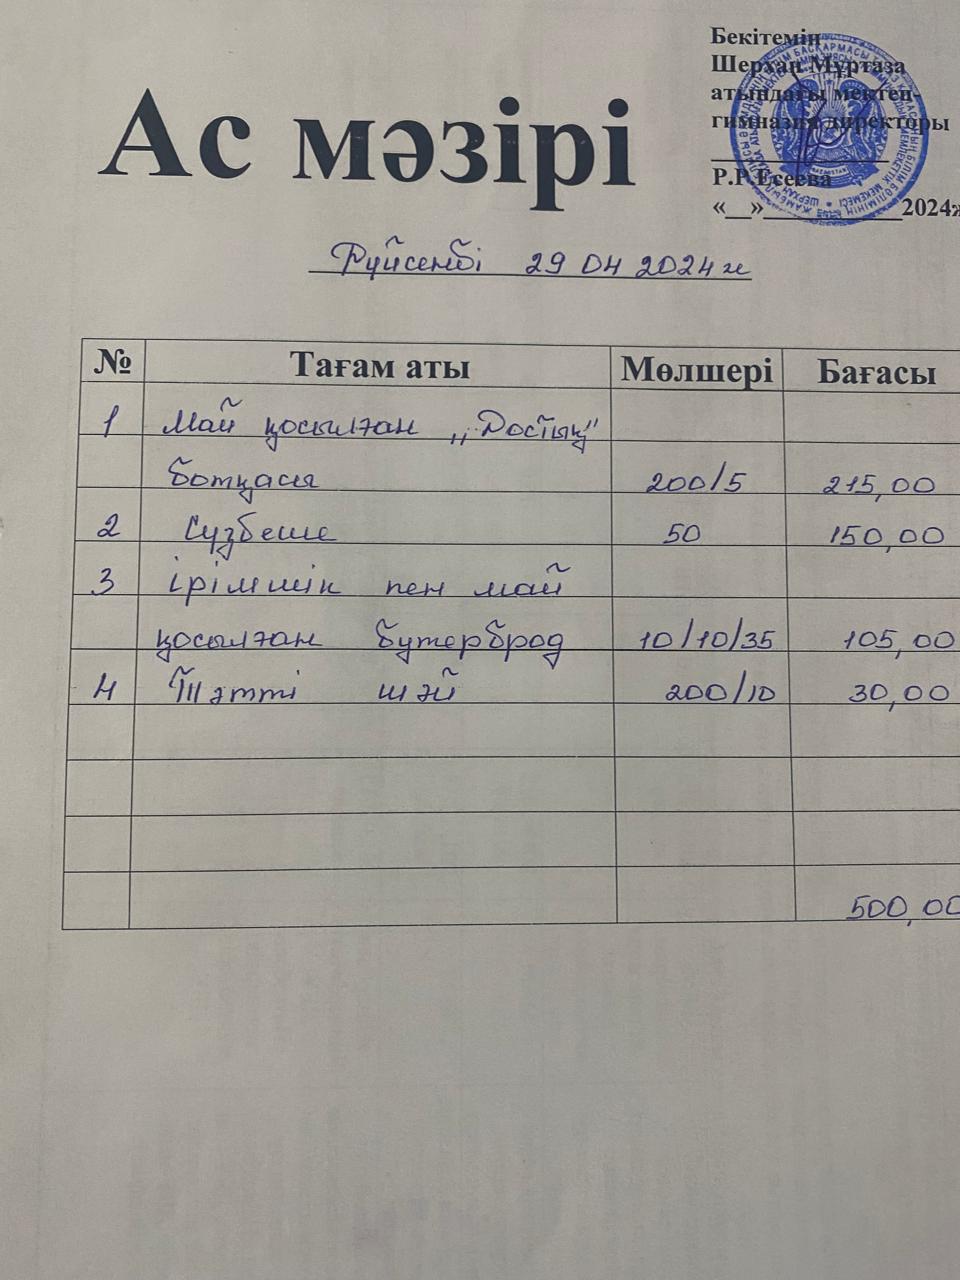 Бекітемін
Шерхан Мұртаза
атындағы мектеп-
гимназия директоры
Р.Р.Есеева
«__»____________2024ж
Ас мәзірі
Дүйсенбі 29 04 2024ж
№ Тағам аты Мөлшері Бағасы
1 Май қосылған „Достық"
ботқасы 200/5 215,00
2 Сүзбеше 50 150,00
3 ірімшік пен май
қосылған бутерброд 10/10/35 105,00
4 Тәтті шәй 200/10 30,00
500,00